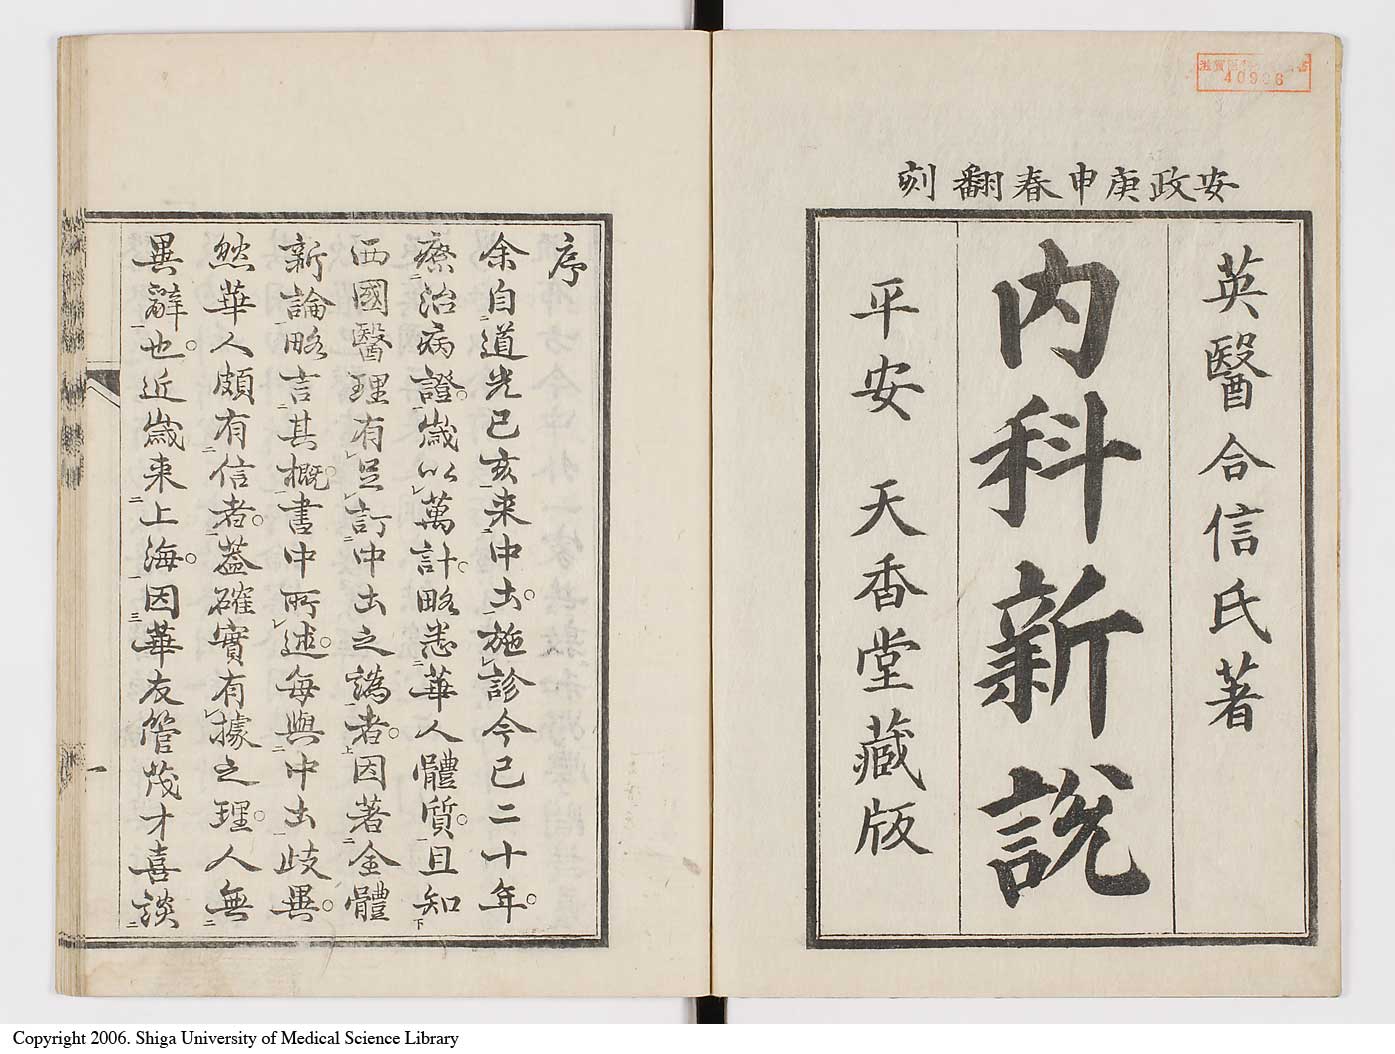 安政庚申春翻刻
英醫合信氏著
內科新說
平安 天香堂藏版
40906
序
余自道光己亥来中土施診今已二十年
療治病證歲以萬計略悉華人體質且知
西國醫理有足訂中土之譌者因著全體
新論略言其概書中所述每與中土歧異
然華人頗有信者蓋確實有據之理人無
異辭也近歲来上海因華友管茂才喜談
一
Copyright 2006. Shiga University of Medical Science Library